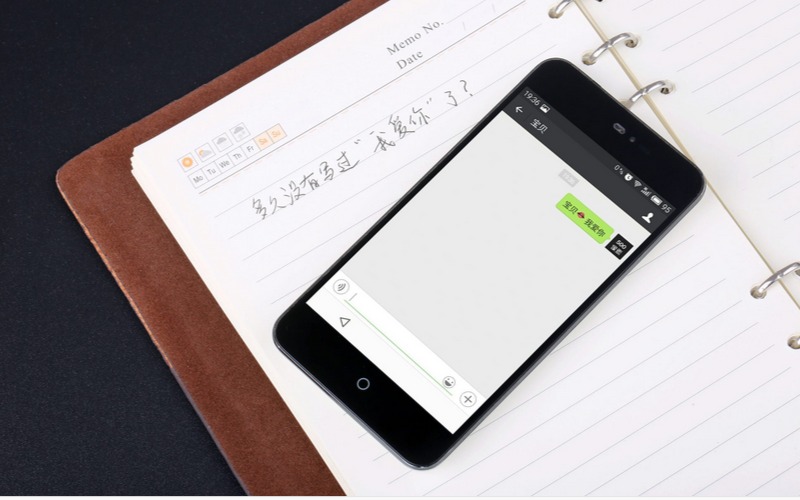 Memo No.
Date
Mo Tu We Th Fr Sa Su
多久没有写过“我爱你”了？
19:36
95
宝贝
宝贝 我爱你
500